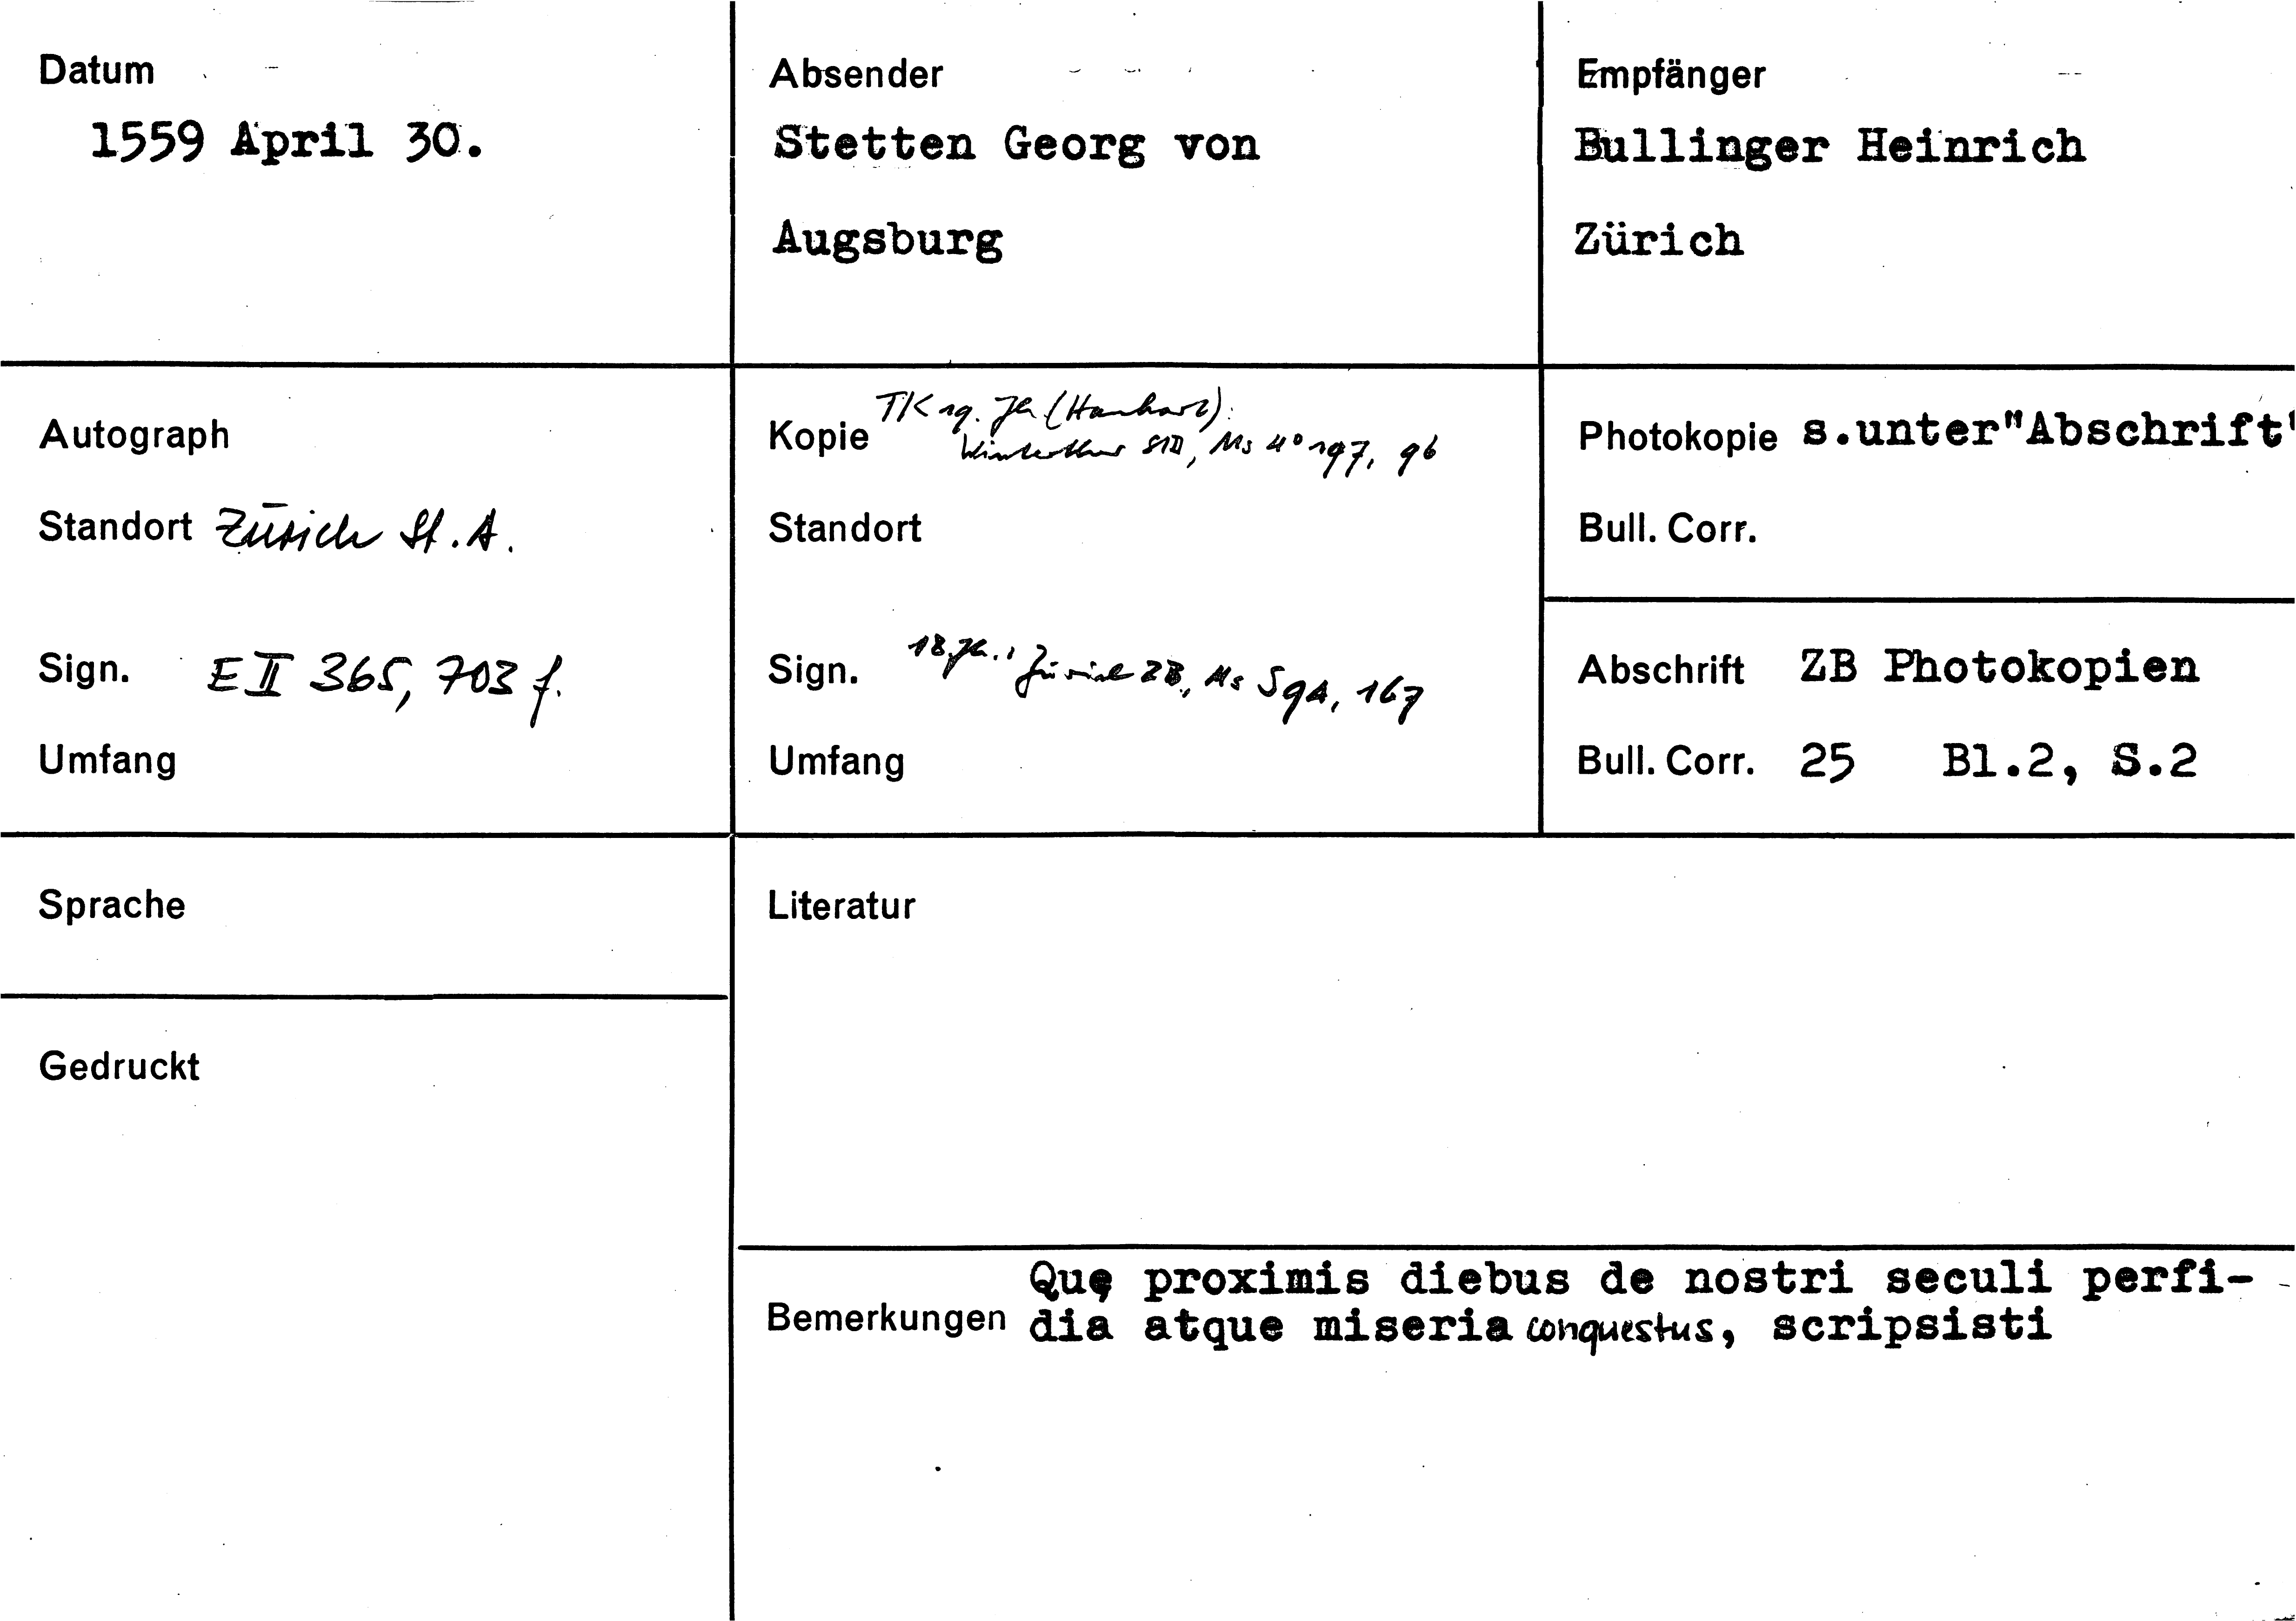 Datum
1559 April 30.
Absender
Stetten Georg von
Augsburg
Empfänger
Bullinger Heinrich
Zürich
Autograph
Standort Zürich St. A.
Sign. E II 365, 703 f.
Umfang
Kopie TK 19. Jh (Hanhart):
Winterthur StB, Ms 4° 197, 96
Standort
Sign. 18. Jh.: Zürich ZB, Ms S 94, 167
Umfang
Photokopie s.unter"Abschrift"
Bull. Corr.
Abschrift ZB Photokopien
Bull. Corr. 25 Bl.2, S.2
Sprache
Gedruckt
Literatur
Bemerkungen Quę proximis diebus de nostri seculi perfi-
dia atque miseria conquestus, scripsisti